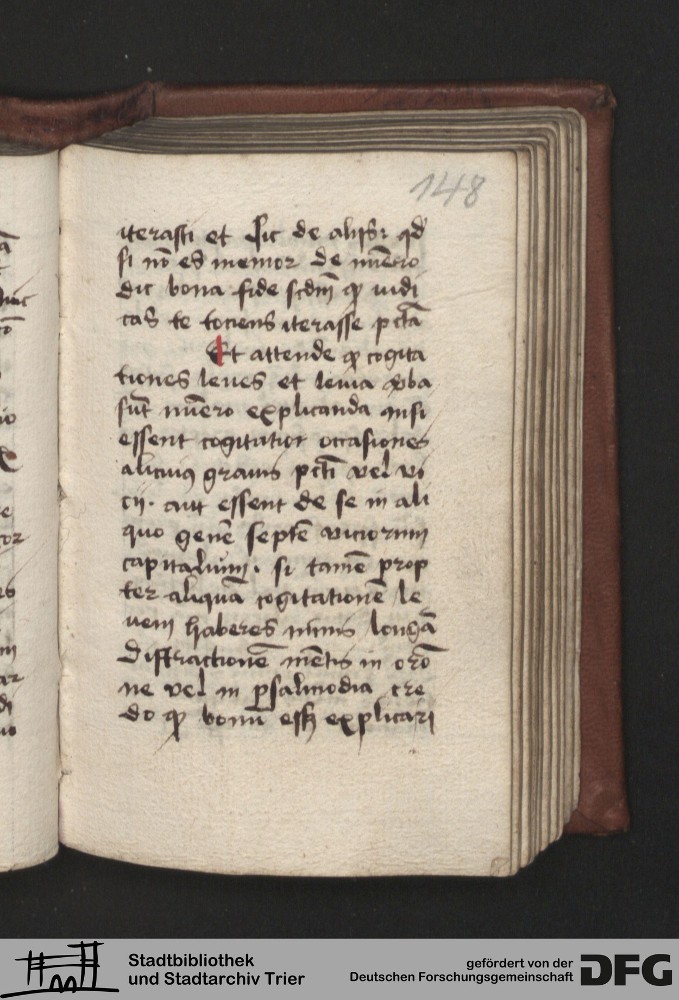 148
iterasti et Sic de aliis qd
si nō es memor de nūero
dic bona fide scdm qp iudi
cas te tociens iterasse pctā
Et attende qp cogita
tiones leues et leuia vba
sūt nūero explicanda nisi
essent cogitatior occasiones
alicuiꝰ grauis pcti vel vi
cij. aut essent de se in ali
quo genē septē viciorum
capitalium. si tamē prop
ter aliquā cogitationē le
uem haberes nimis longā
Distractionē mētis in orō
ne vel in psalmodia cre
do qp bonū esset explicari
Stadtbibliothek
und Stadtarchiv Trier
gefördert von der
Deutschen Forschungsgemeinschaft
DFG